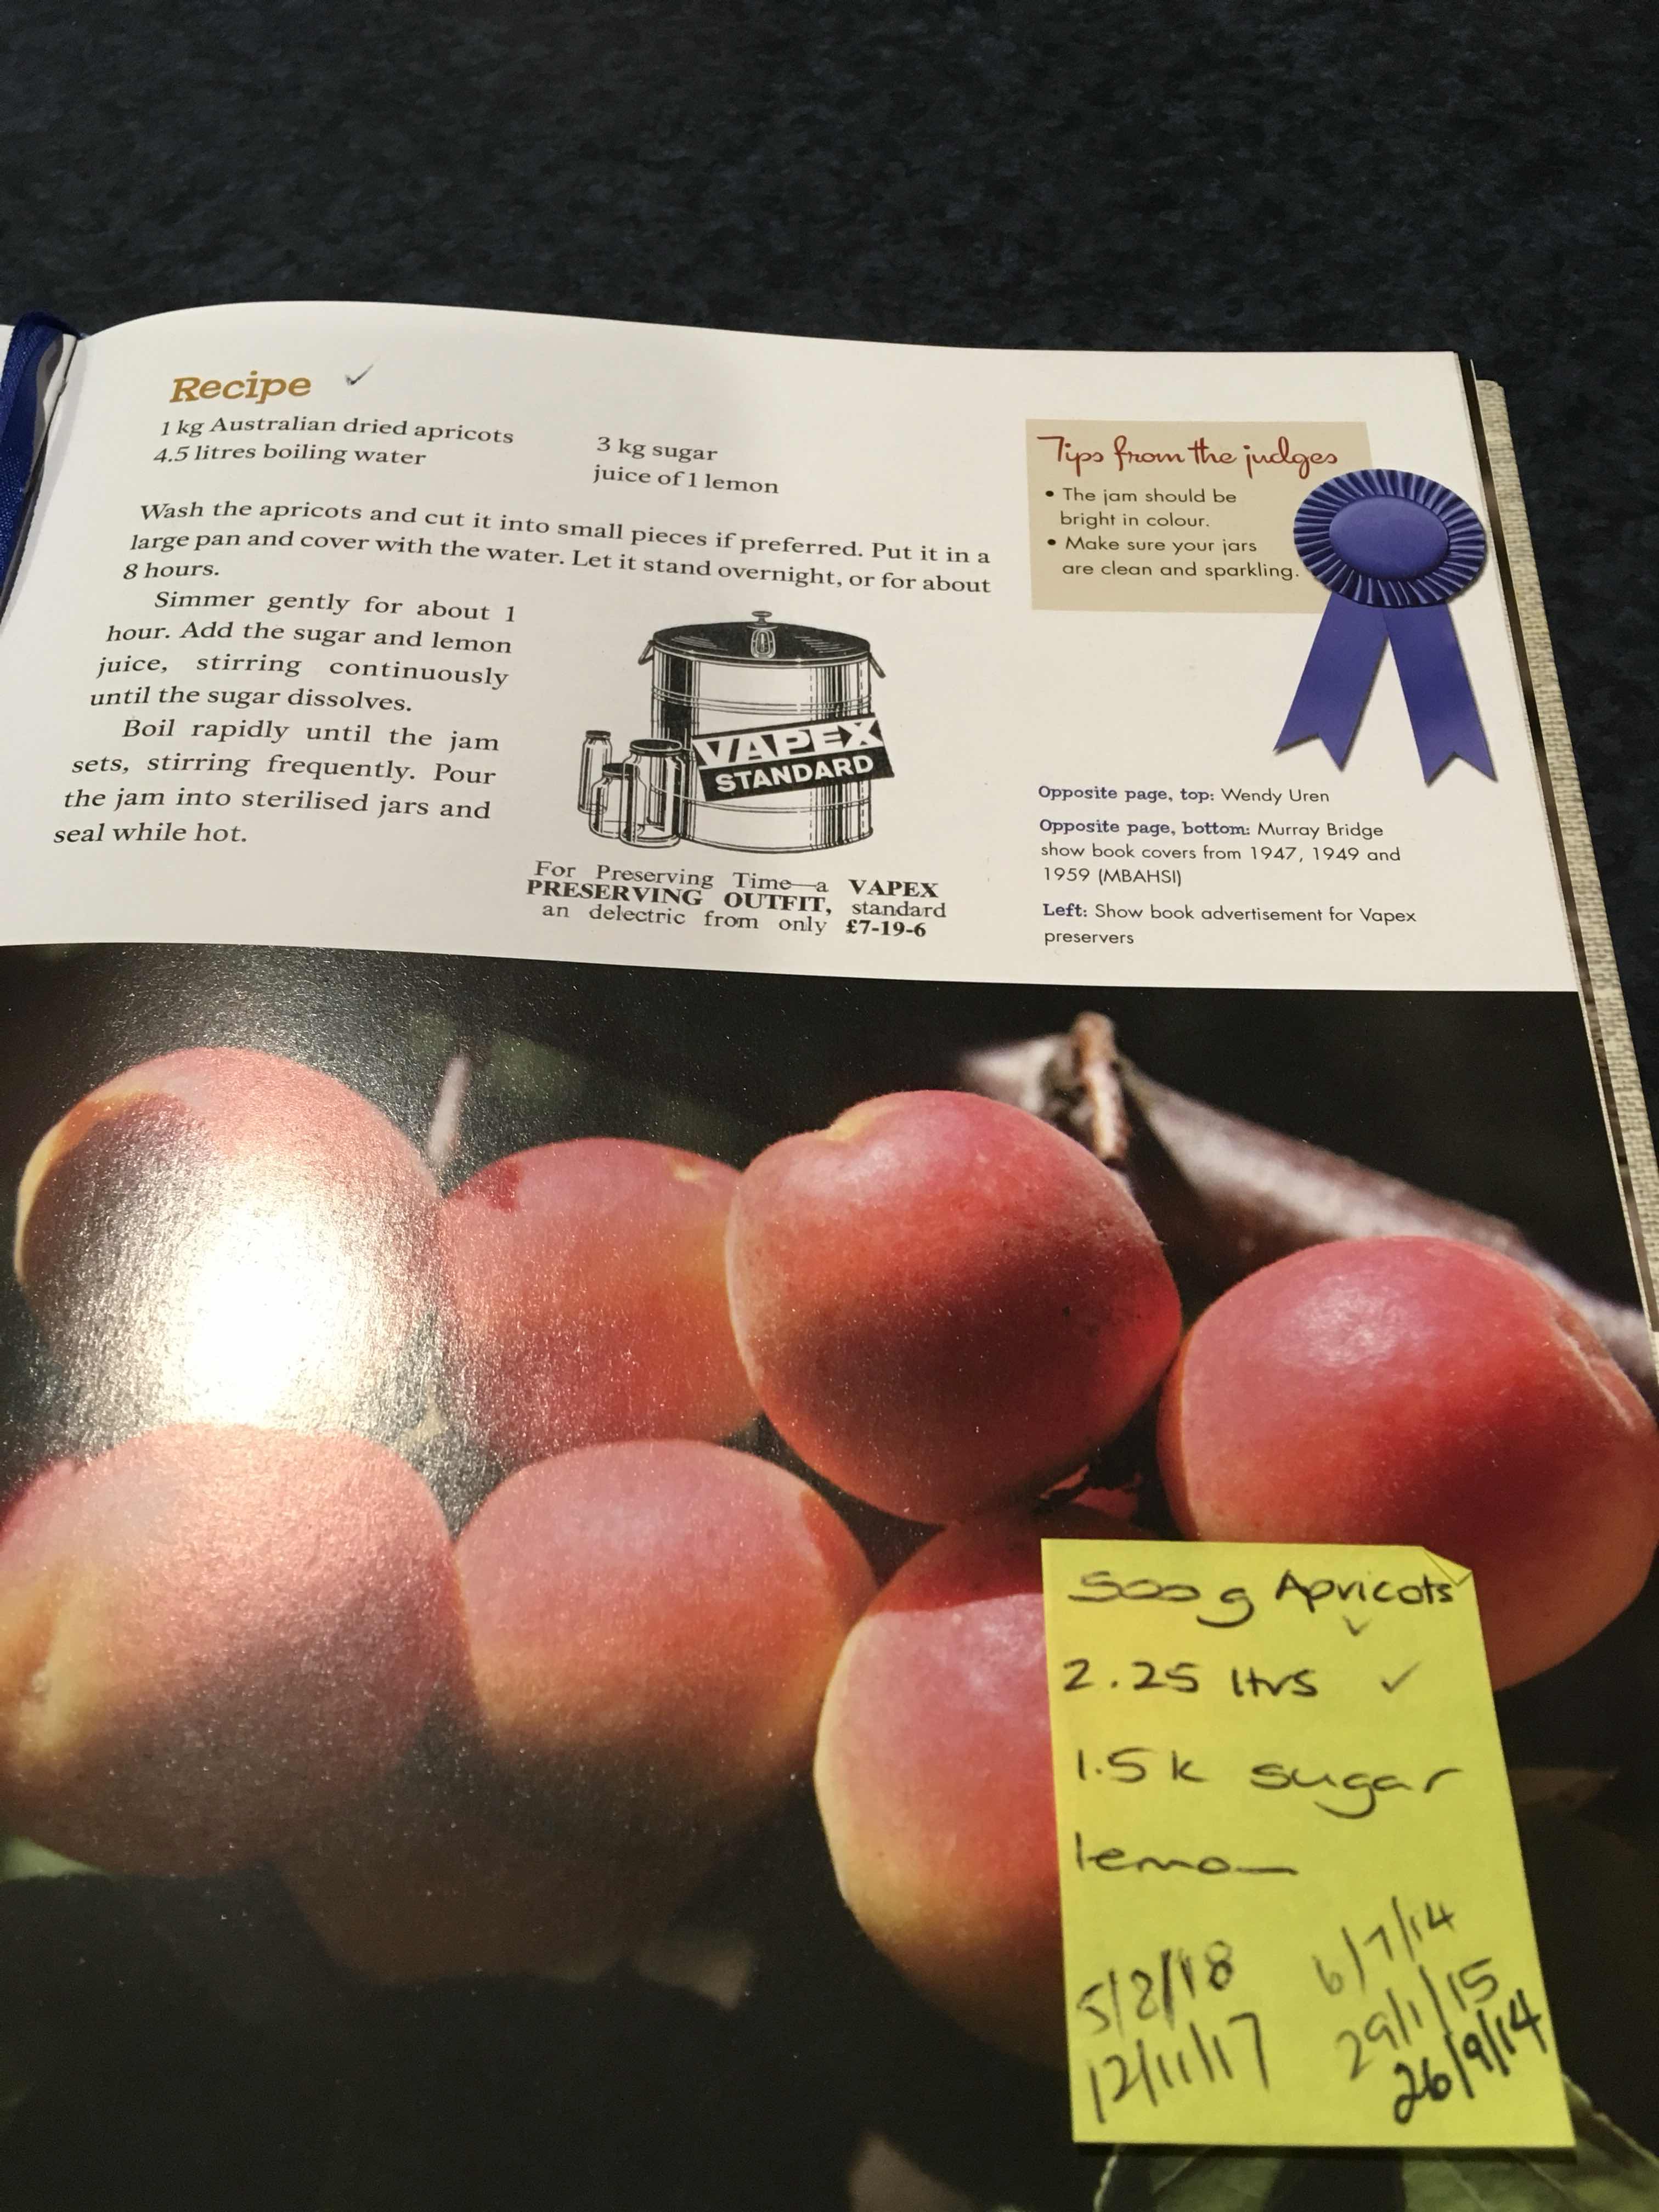 Recipe ✓
1 kg Australian dried apricots
4.5 litres boiling water
3 kg sugar
juice of 1 lemon
Wash the apricots and cut it into small pieces if preferred. Put it in a
large pan and cover with the water. Let it stand overnight, or for about
8 hours.
Simmer gently for about 1
hour. Add the sugar and lemon
juice, stirring continuously
until the sugar dissolves.
Boil rapidly until the jam
sets, stirring frequently. Pour
the jam into sterilised jars and
seal while hot.
VAPEX
STANDARD
For Preserving Time—a VAPEX
PRESERVING OUTFIT, standard
an delectric from only £7-19-6
Tips from the judges
• The jam should be
bright in colour.
• Make sure your jars
are clean and sparkling.
Opposite page, top: Wendy Uren
Opposite page, bottom: Murray Bridge
show book covers from 1947, 1949 and
1959 (MBAHSI)
Left: Show book advertisement for Vapex
preservers
500 g Apricots
✓
2.25 ltrs ✓
1.5 k sugar
lemon
5/2/18
12/11/17
6/7/14
29/1/15
26/9/14